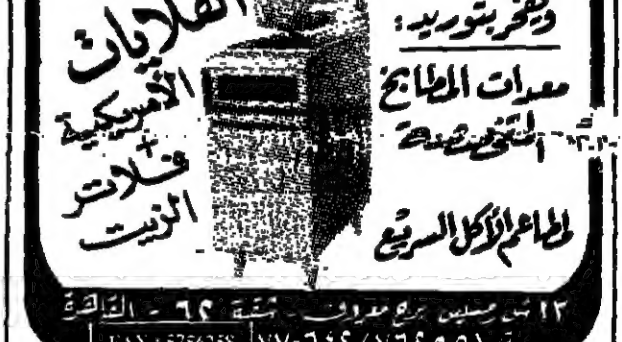 ويفخر بتوريد:
معدات المطابخ
المتخصصة
لمطاعم الأكل السريع
القلايات
الأمريكية
+
فلاتر
الزيت
١٢ ش برج شقة ٦٢ - القاهرة